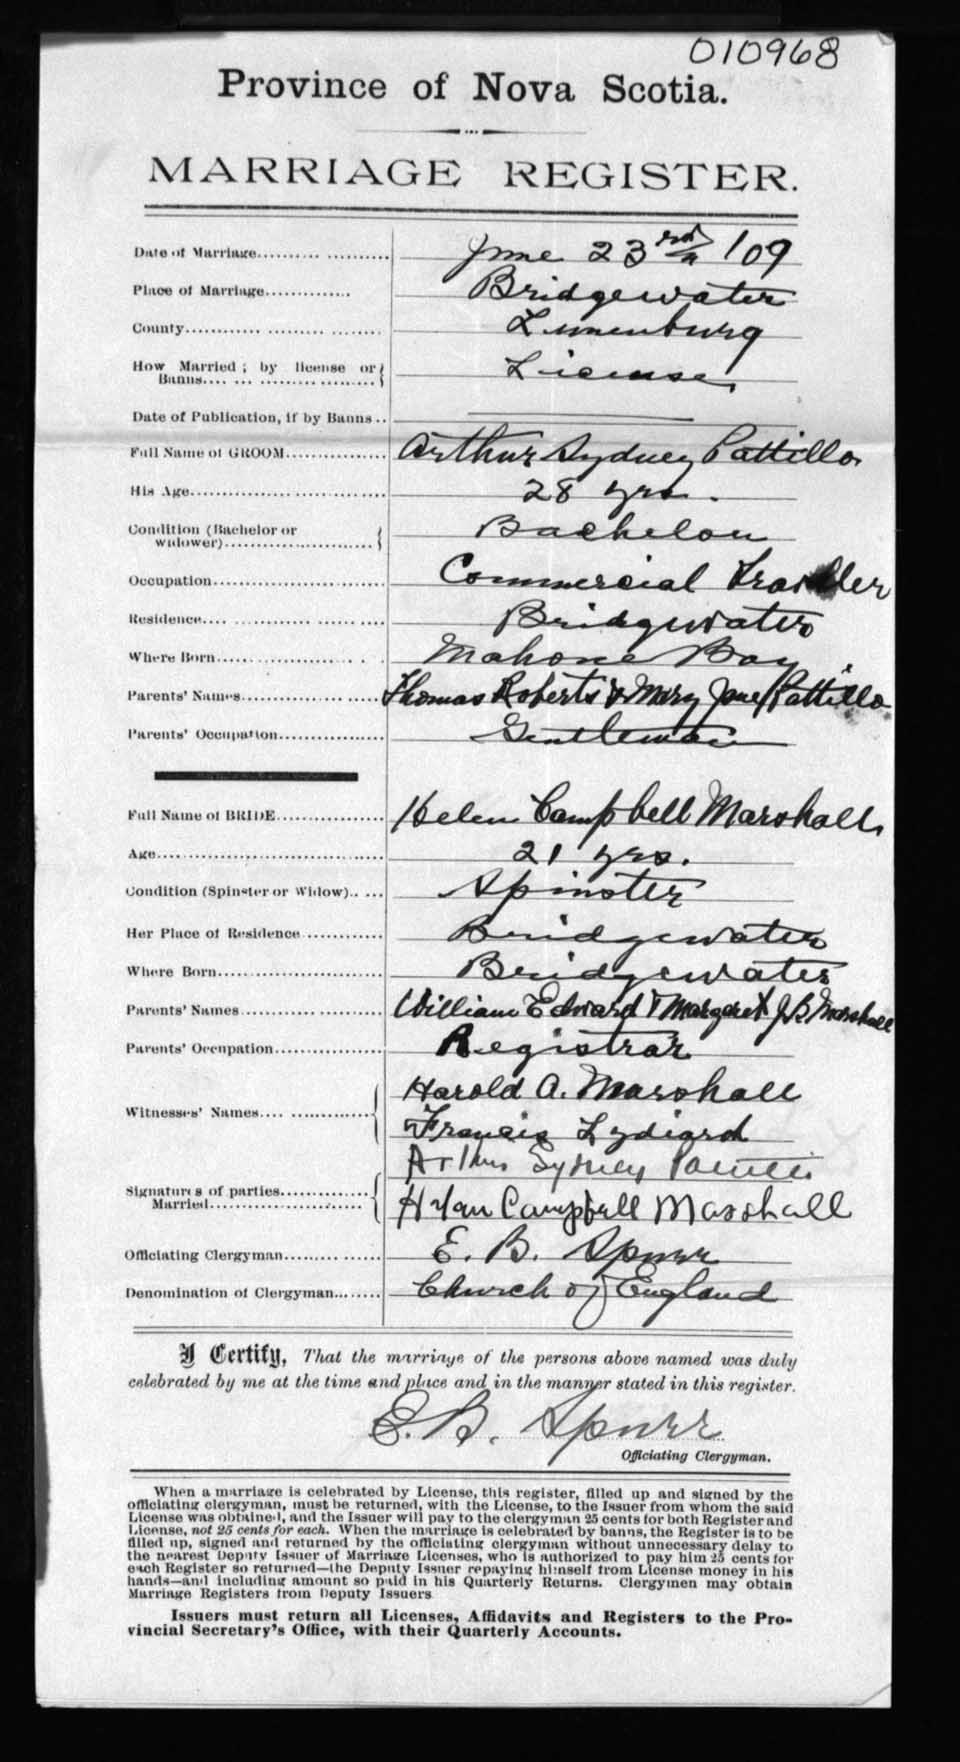 010968
Province of Nova Scotia.
MARRIAGE REGISTER.
Date of Marriage.................. June 23rd /09
Place of Marriage.............. Bridgewater
County.............................. Lunenburg
How Married ; by license or Banns.................... License
Date of Publication, if by Banns ..
Full Name of GROOM................ Arthur Sydney Pattillo
His Age.............................. 28 yrs.
Condition (Bachelor or widower)...................... Bachelor
Occupation........................... Commercial Traveller
Residence............................. Bridgewater
Where Born......................... Mahone Bay
Parents' Names...................... Thomas Roberts & Mary Jane Pattillo
Parents' Occupation................ Gentleman
Full Name of BRIDE................ Helen Campbell Marshall
Age................................... 21 yrs.
Condition (Spinster or Widow)...... Spinster
Her Place of Residence............ Bridgewater
Where Born......................... Bridgewater
Parents' Names...................... William Edward & Margaret J.B. Marshall
Parents' Occupation................ Registrar
Witnesses' Names.................... Harold A. Marshall
Francis Lydiard
Signatures of parties Married........................ Arthur Sydney
Helen Campbell Marshall
Officiating Clergyman............... E. B. Spurr
Denomination of Clergyman........ Church of England
I Certify, That the marriage of the persons above named was duly
celebrated by me at the time and place and in the manner stated in this register.
E. B. Spurr
Officiating Clergyman.
When a marriage is celebrated by License, this register, filled up and signed by the
officiating clergyman, must be returned, with the License, to the Issuer from whom the said
License was obtained, and the Issuer will pay to the clergyman 25 cents for both Register and
License, not 25 cents for each. When the marriage is celebrated by banns, the Register is to be
filled up, signed and returned by the officiating clergyman without unnecessary delay to
the nearest Deputy Issuer of Marriage Licenses, who is authorized to pay him 25 cents for
each Register so returned—the Deputy Issuer repaying himself from License money in his
hands—and including amount so paid in his Quarterly Returns. Clergymen may obtain
Marriage Registers from Deputy Issuers
Issuers must return all Licenses, Affidavits and Registers to the Pro-
vincial Secretary's Office, with their Quarterly Accounts.